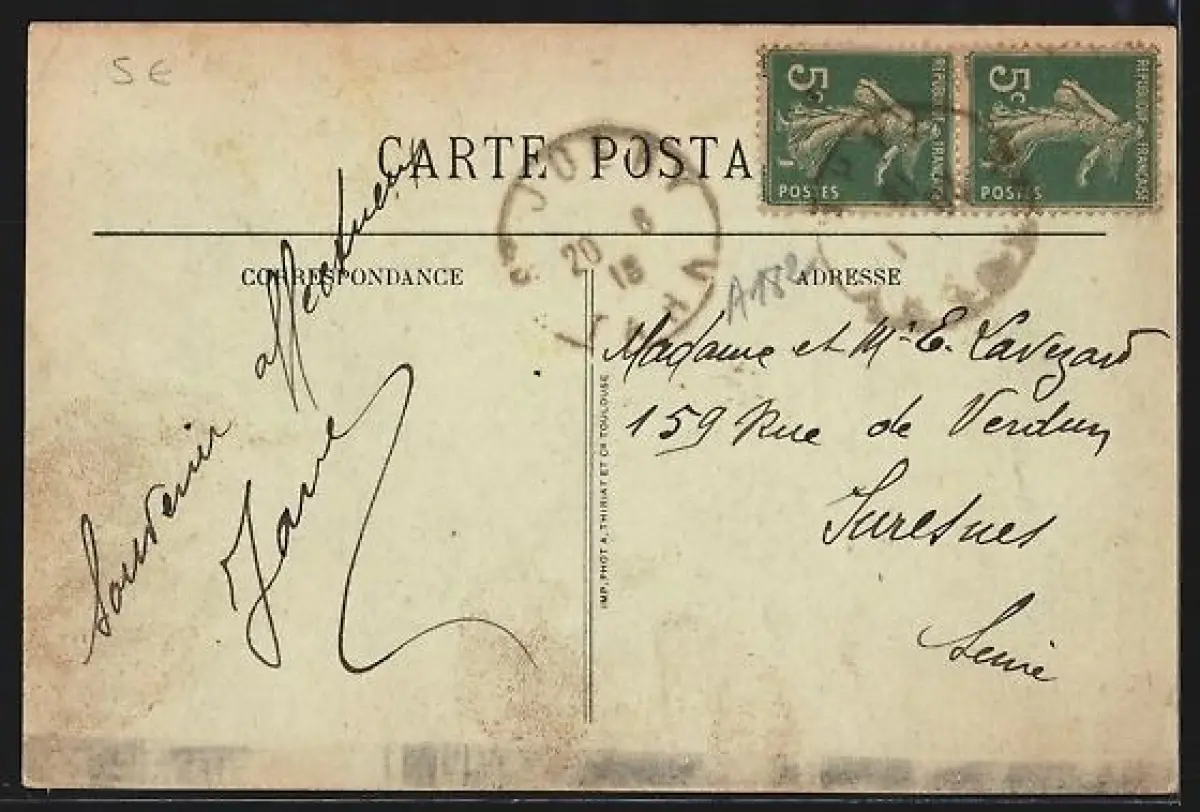 5 €
CARTE POSTA
5c
REPUBLIQUE FRANÇAISE
POSTES
5c
REPUBLIQUE FRANÇAISE
POSTES
20 8
15
CORRESPONDANCE
ADRESSE
A182
Souvenir affectueux
Madame et Mr E. Lavezard
159 Rue de Verdun
Suresnes
Seine
IMP. PHOT A. THIRIAT ET Cie TOULOUSE